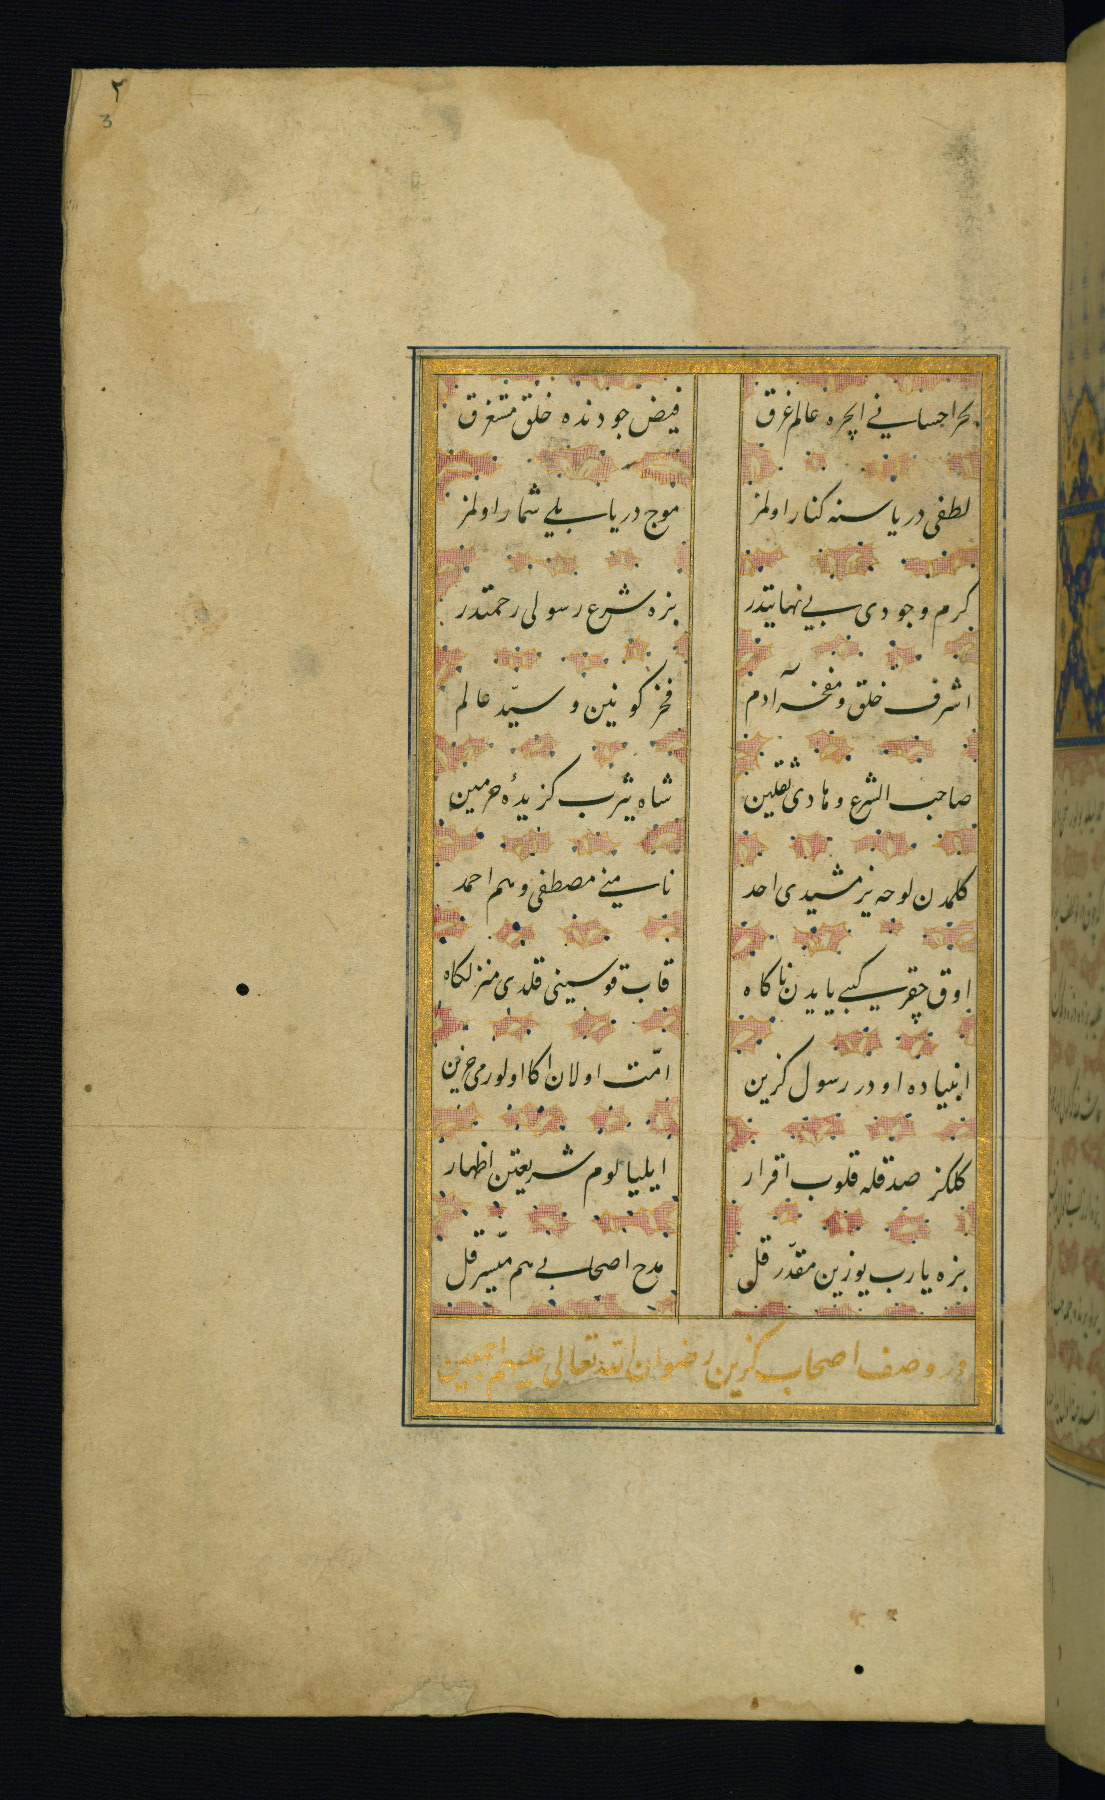 ٢
3
بحر احسانی ایچره عالم غرق فیض جودنده خلق مستغرق
لطفی دریاسنه کنار اولمز موج دریا بلی شمار اولمز
کرم وجودی بی نهایتدر بزه شرع رسولی رحمتدر
اشرف خلق و مفخر آدم فخر کونین و سیّد عالم
صاحب الشرع و هادئ ثقلین شاه یثرب کزیدۀ حرمین
کلمدن لوحه یزمشیدی احد نامینی مصطفی و هم احمد
اوق چقر کبی یایدن ناکاه قاب قوسینی قلدی منزلکاه
انبیاده اودر رسول کزین امّت اولان اکا اولورمی حزین
کلکز صدقله قلوب اقرار ایلیالوم شریعتن اظهار
بزه یارب یوزین مقدّر قل مدح اصحابی هم میّسر قل
در وصف اصحاب کزین رضوان الله تعالی علیهم اجمعین